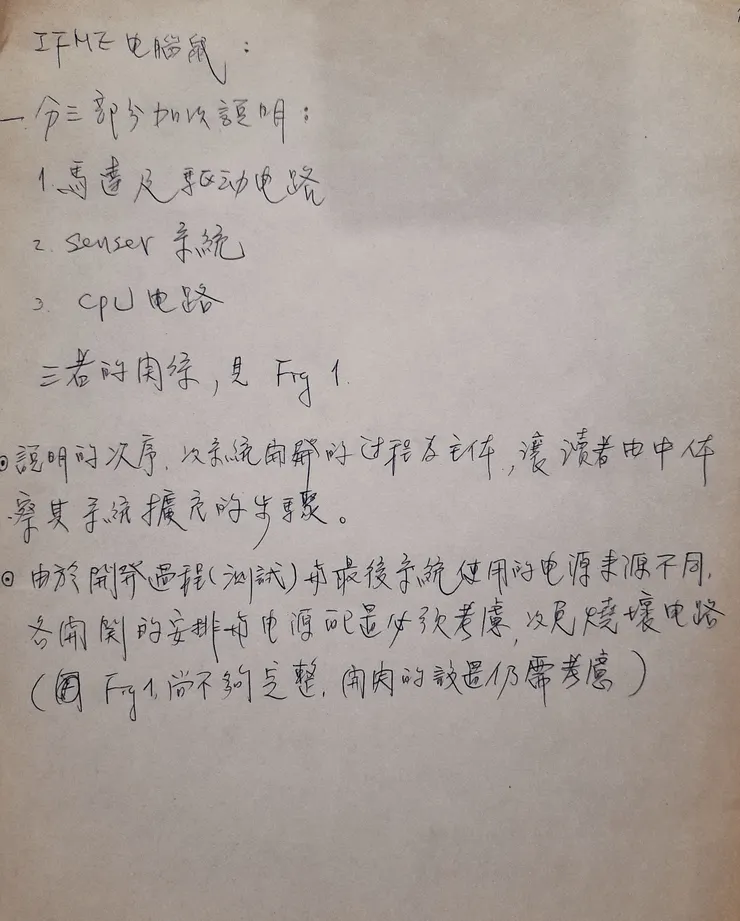 IFME 电腦鼠：
一. 分三部分加以說明：
1. 馬達及驱动电路
2. senser 系統
3. CPU 电路
三者的関係，見 Fig 1.
⊙說明的次序，以系統開發的过程為主体，讓讀者由中体
察其系統擴充的步驟。
⊙由於開發過程(測試)与最後系統使用的电源来源不同，
各開関的安排与电源配置必須考慮，以免燒壞电路
(图 Fig 1，尚不夠完整，開関的設置仍需考慮)